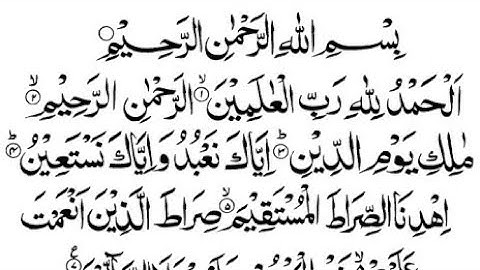 بِسْمِ اللهِ الرَّحْمٰنِ الرَّحِيْمِ
اَلْحَمْدُ لِلّٰهِ رَبِّ الْعٰلَمِيْنَ ۙ۝۱ الرَّحْمٰنِ الرَّحِيْمِ ۙ۝۲
مٰلِكِ يَوْمِ الدِّيْنِ ؕ۝۳ اِيَّاكَ نَعْبُدُ وَاِيَّاكَ نَسْتَعِيْنُ ؕ۝۴
اِهْدِنَا الصِّرَاطَ الْمُسْتَقِيْمَ ۙ۝۵ صِرَاطَ الَّذِيْنَ اَنْعَمْتَ